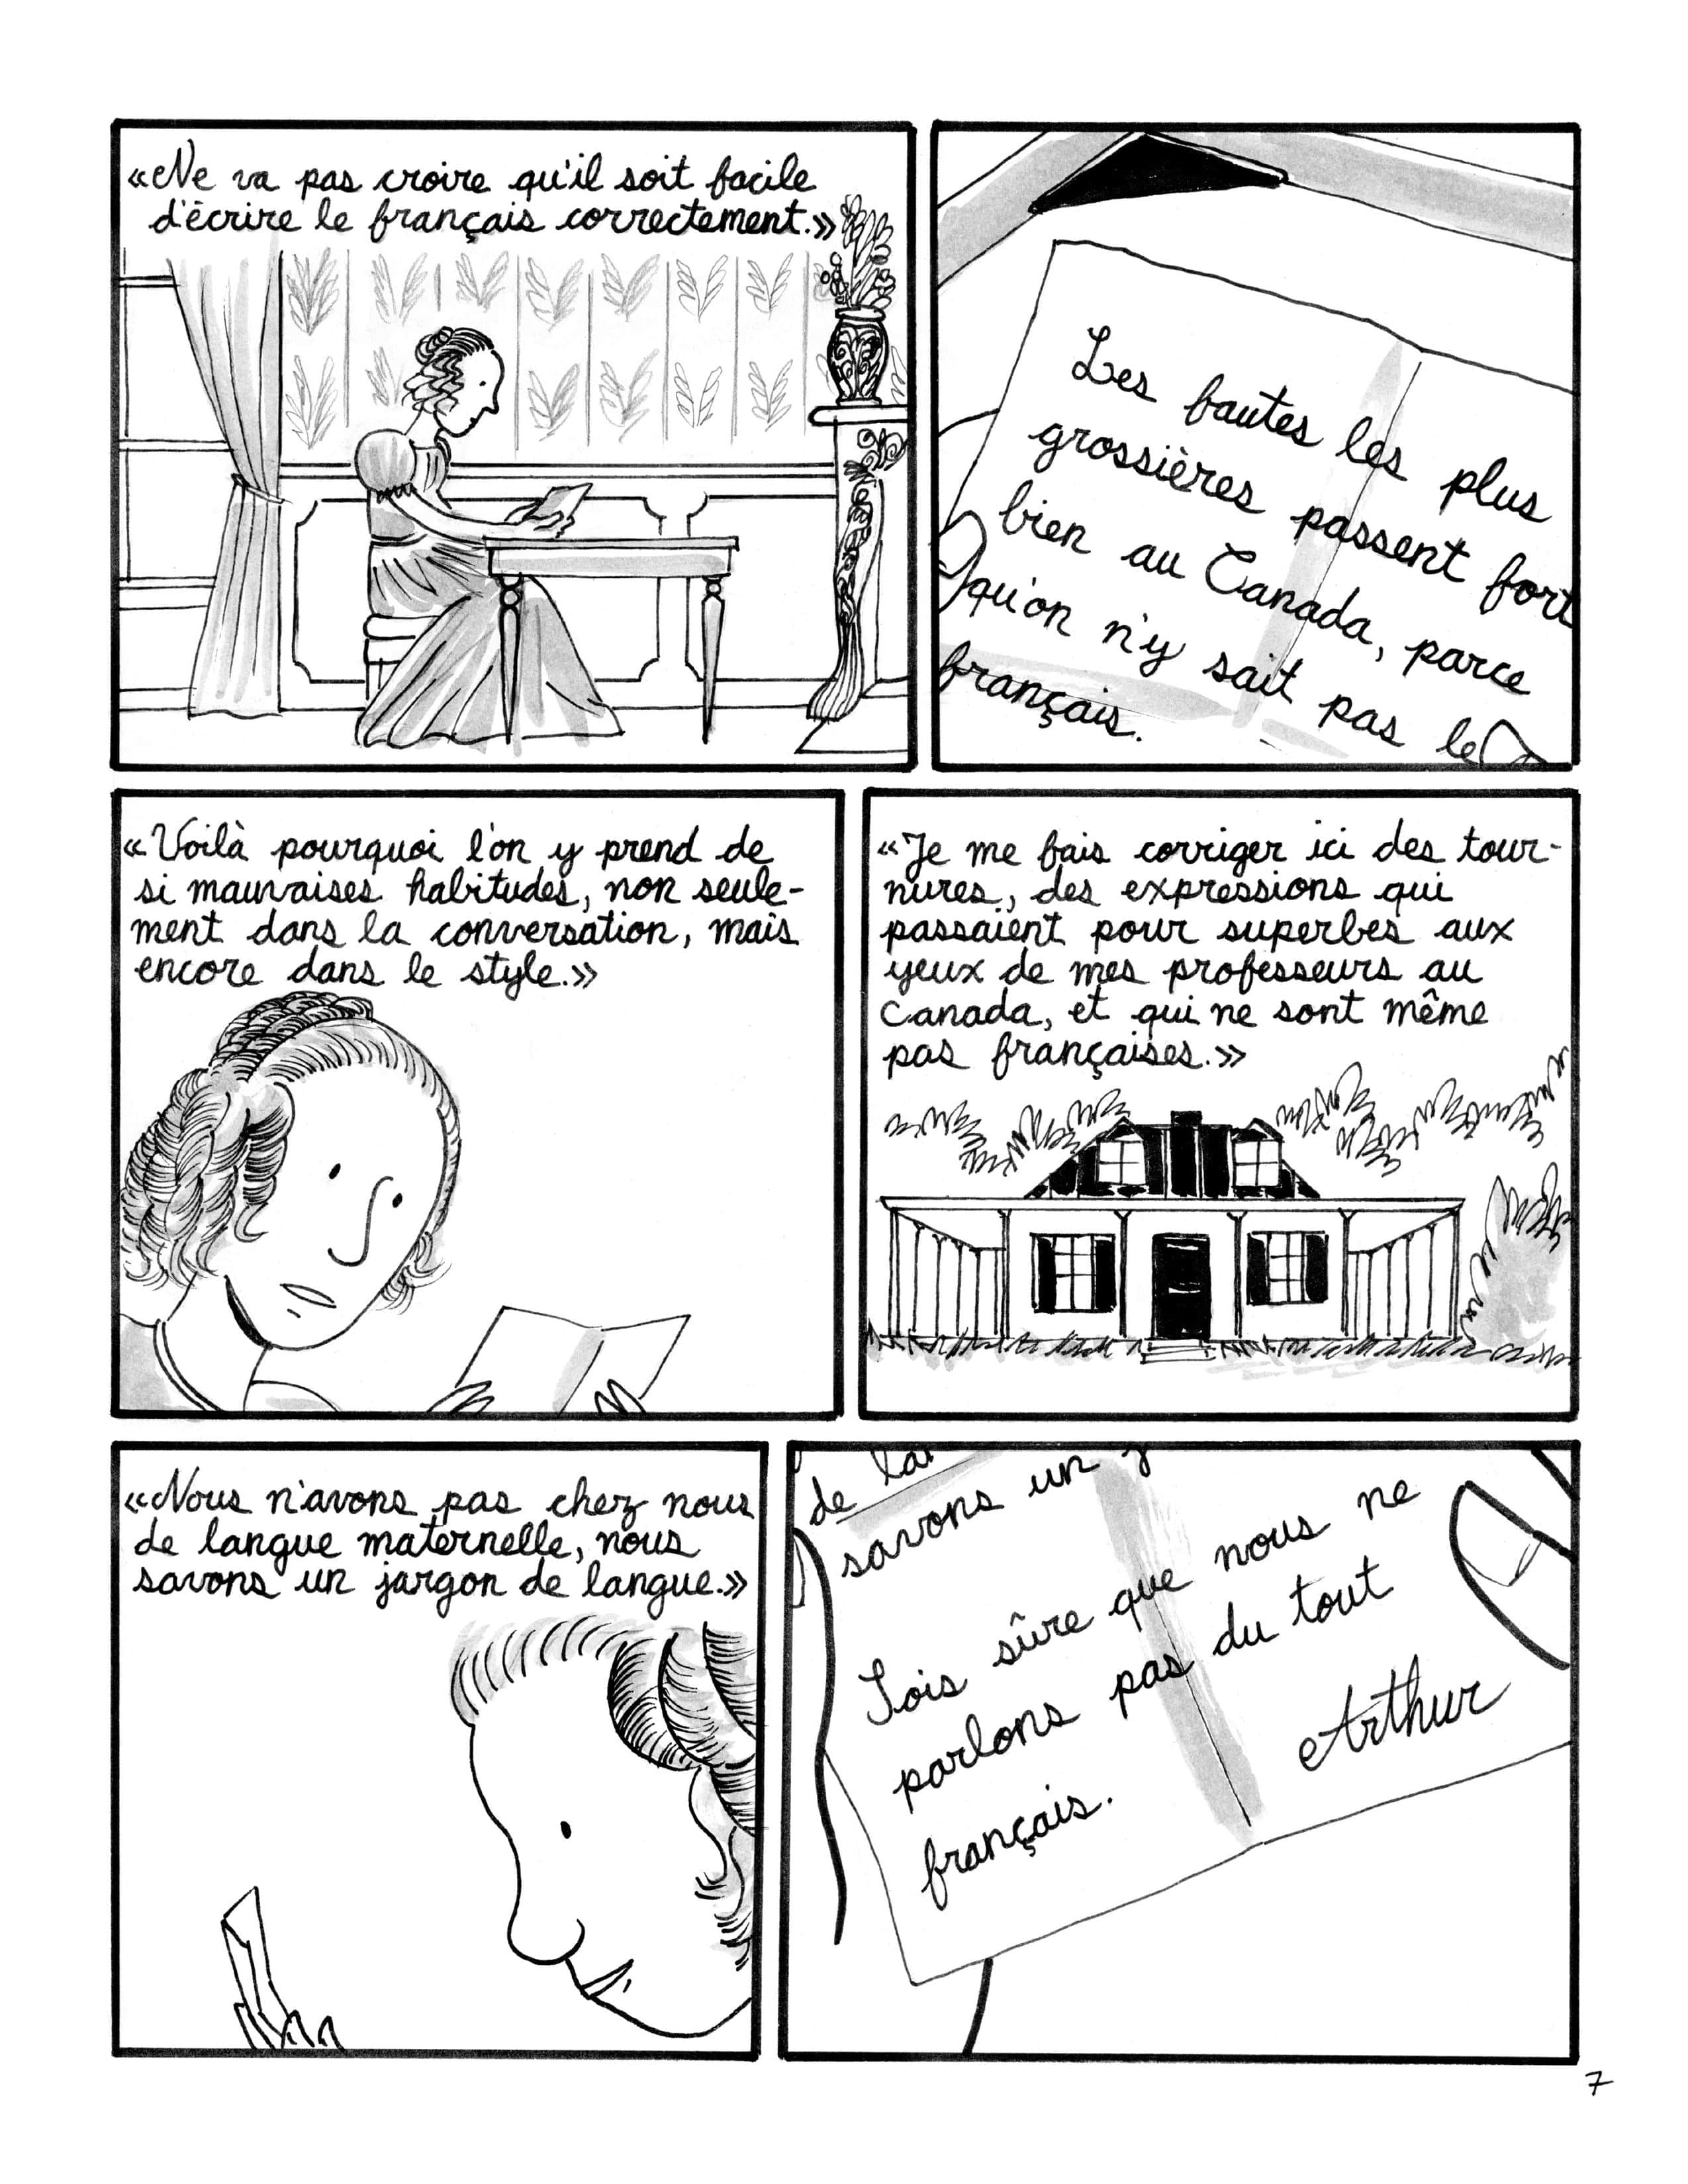 «Ne va pas croire qu'il soit facile
d'écrire le français correctement.»
Les fautes les plus
grossières passent fort
bien au Canada, parce
qu'on n'y sait pas le
français.
«Voilà pourquoi l'on y prend de
si mauvaises habitudes, non seule-
ment dans la conversation, mais
encore dans le style.»
«Je me fais corriger ici des tour-
nures, des expressions qui
passaient pour superbes aux
yeux de mes professeurs au
Canada, et qui ne sont même
pas françaises.»
«Nous n'avons pas chez nous
de langue maternelle, nous
savons un jargon de langue.»
de
savons un
Sois sûre que nous ne
parlons pas du tout
français.
Arthur
7